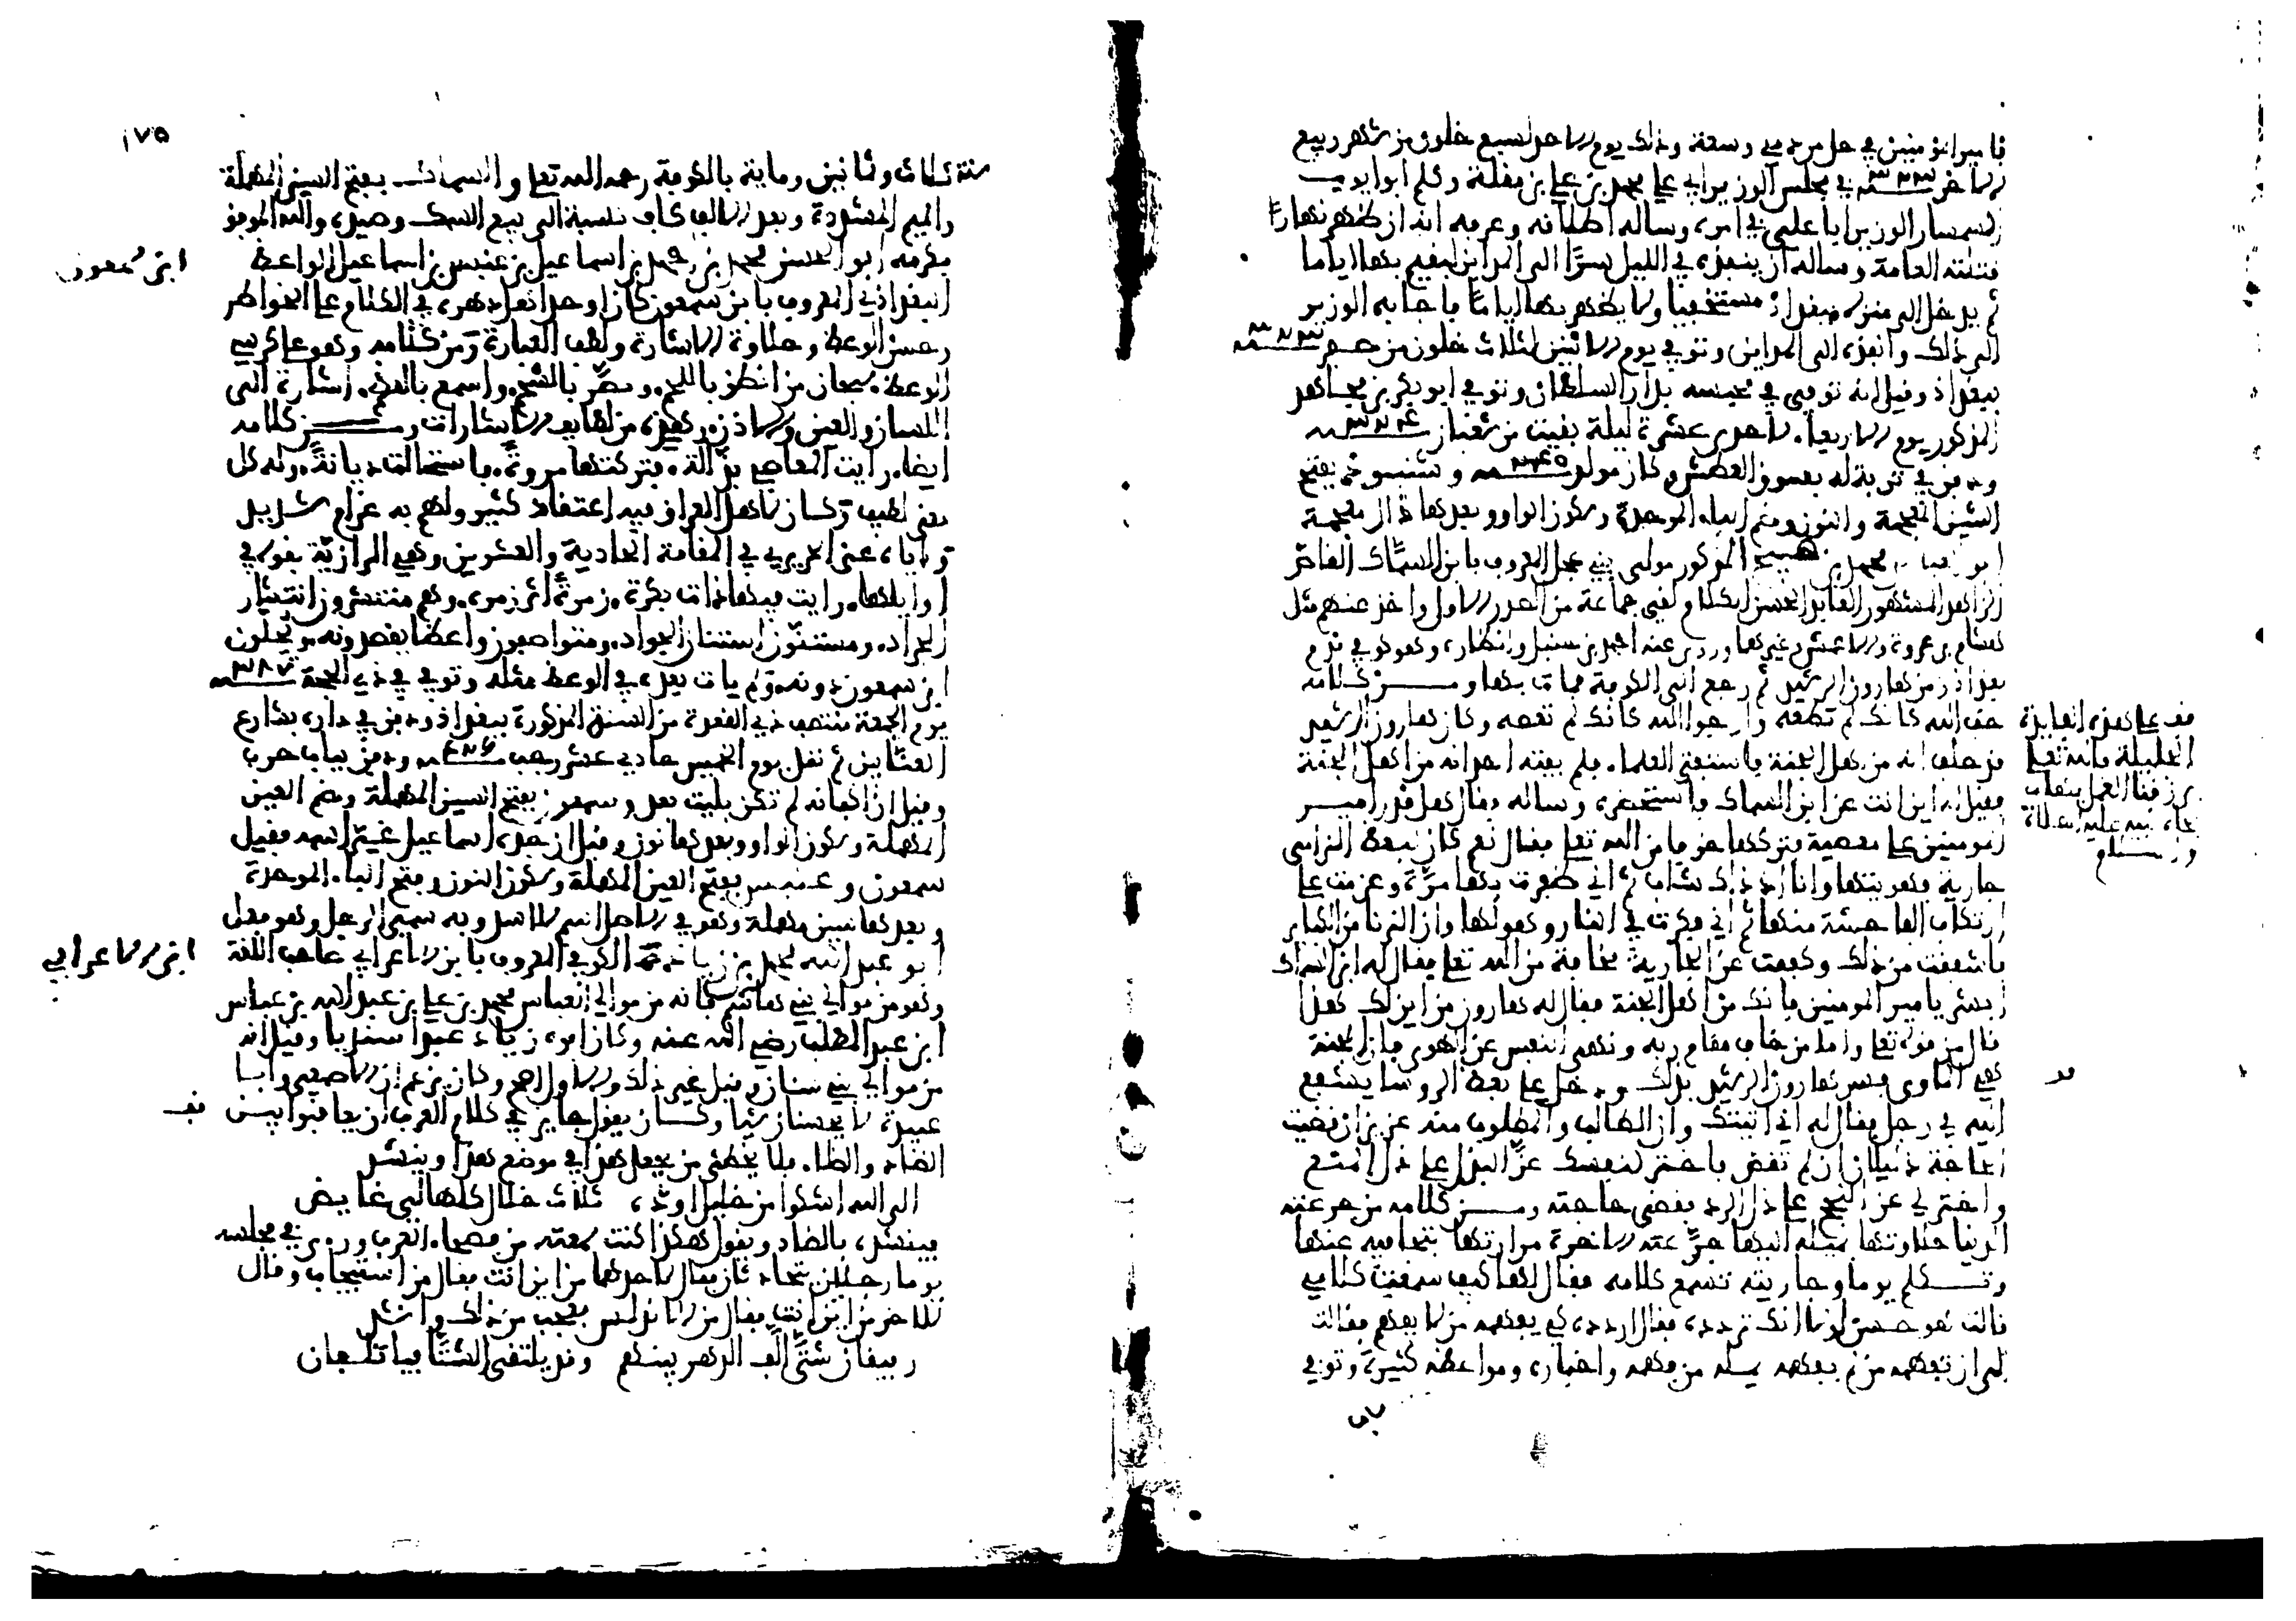 فأمير المؤمنين في حل من دمي وسعة وذلك يوم الاحد لسبع خلون من شهر ربيع
الاخر سنة ٣٢٣ في مجلس الوزير ابي علي محمد بن علي بن مقلة وكلم ابو ايوب
السمسار الوزير ابا علي في امره وساله اطلاقه وعرفه انه ان ظهر نهارا
قتلته العامة وساله ان ينفذه في الليل سرًّا الى المداين ليقيم بها اياما
ثم يدخل الى منزله ببغداذ مستخفيا ولا يظهر بها اياما فاجابه الوزير
الى ذلك وانفذه الى المداين وتوفي يوم الاثنين لثلاث خلون من صفر
ببغداذ وقيل انه توفي في محبسه بدار السلطان وتوفي ابو بكر بن مجاهد
المذكور يوم الاربعاء لاحدى عشرة ليلة بقيت من شعبان سنة ٣٢٤
ودفن في تربة له بسوق العطش وكان مولده سنة ٢٤٥ وشنبوذ بفتح
الشين المعجمة والنون وضم الباء الموحدة وسكون الواو وبعدها ذال معجمة
ابو العباس محمد بن صبيح المذكور مولى بني عجل المعروف بابن السماك القاص
الزاهد المشهور العابد الحسن الكلام لقي جماعة من الصدر الاول واخذ عنهم مثل
هشام بن عروة والاعمش وغيرهما وروى عنه احمد بن حنبل وانظاره وهو كوفي قدم
بغداذ زمن هارون الرشيد ثم رجع الى الكوفة فمات بها ومن كلامه
خف الله كانك لم تطعه وارجوا الله كانك لم تعصه وكان هارون الرشيد
قد حلف انه من اهل الجنة فاستفتى العلماء فلم يفته احد انه من اهل الجنة
فقيل له اين انت عن ابن السماك فاستحضره وساله فقال هل قدر امير
المومنين على معصية فتركها خوفا من الله تعلى فقال نعم كان لبعض الزامي
جارية فهويتها وانا اذ ذاك شاب ثم اني ظفرت بها مرة وعزمت على
ارتكاب الفاحشة منها ثم اني فكرت في النار وهولها وان الزنا من الكباير
فاشفقت من ذلك وكففت عن الجارية مخافة من الله تعلى فقال له ابن السماك
ابشر يا مير المومنين فانك من اهل الجنة فقال له هارون من اين لك هذا
قال من قوله تعلى واما من خاف مقام ربه ونهى النفس عن الهوى فان الجنة
هي الماوى فسر هارون الرشيد بذلك ودخل على بعض الروسا يشفع
اليه في رجل فقال له اني اتيتك وان الطالب والمطلوب منه عزيزان ان قضيت
الحاجة ذليلان ان لم تقض فاختر لنفسك عز البذل على ذل المنع
واختر لي عز النجح على ذل الرد فقضى حاجته ومن كلامه من جرعته
الدنيا حلاوتها بميله اليها جرعته الاخرة مرارتها بتجافيه عنها
وتكلم يوما وجاريته تسمع كلامه فقال لها كيف سمعت كلامي
قالت هو حسن لولا انك تردده فقال اردده كي يفهمه من لا يفهم فقالت
الى ان تفهمه من لم يفهمه يمله من فهمه واخباره ومواعظه كثيرة وتوفي
قف على هذه الفايدة
الجليلة فالله تعلى
يرزقنا العمل بها
بجاه نبيه عليه الصلاة
والسلام
قف
١٧٥
سنة ثلاث وثمانين وماية بالكوفة رحمه الله تعلى والسماك بفتح السين المهملة
والميم المشددة وبعد الالف كاف نسبة الى بيع السمك وصيده والله الموفق
بكرمه ابو الحسن محمد بن احمد بن اسماعيل بن عنبس بن اسماعيل الواعظ
البغداذي المعروف بابن سمعون كان اوحد اهل دهره في الكلام على الخواطر
وحسن الوعظ وحلاوة الاشارة ولطف العبارة ومن كلامه وهو على كرسي
الوعظ سبحان من انطق باللحم وبصر بالشحم واسمع بالعظم اشارة الى
اللسان والعين والاذن وهذه من لطايف الاشارات ومن كلامه
ايضا رايت المعاصي نذالة فتركتها مروة فاستحالت ديانة وله كل
معنى لطيف وكان لاهل العراق فيه اعتقاد كثير ولهم به غرام شديد
واياه عنى الحريري في المقامة الحادية والعشرين وهي الرازية بقوله في
اوايلها رايت بها ذات بكرة زمرة اثر زمرة وهم منتشرون انتشار
الجراد ومستنون استنان الجواد ومتواصفون واعظا يقصدونه ويحلون
ابن سمعون دونه ولم يات بعده في الوعظ مثله وتوفي في ذي الحجة سنة ٣٨٧
يوم الجمعة منتصف ذي القعدة من السنة المذكورة ببغداذ ودفن في داره بشارع
العتابين ثم نقل يوم الخميس حادي عشر رجب سنة ٤٢٦ ودفن بباب حرب
وقيل ان اكفانه لم تكن بليت بعد وسمعون بفتح السين المهملة وضم العين
المهملة وسكون الواو وبعدها نون وقيل ان جده اسماعيل غير اسمه فقيل
سمعون وعنبس بفتح العين المهملة وسكون النون وفتح الباء الموحدة
وبعدها سين مهملة وهو في الاصل اسم الاسد وبه سمي الرجل وهو فعل
ابو عبد الله محمد بن زياد الكوفي المعروف بابن الاعرابي صاحب اللغة
وهو من موالي بني هاشم فانه من موالي العباس بن محمد بن علي بن عبد الله بن عباس
ابن عبد المطلب رضي الله عنه وكان ابوه زياد عبدا سنديا وقيل انه
من موالي بني شيبان وقيل غير ذلك والاول اصح وكان يزعم ان الاصمعي وابا
عبيدة لا يحسنان شيا وكان يقول جايز في كلام العرب ان يعاقبوا بين
الضاد والظاء فلا يخطئ من يجعل هذا في موضع هذا وينشد
الى الله اشكوا من خليل اوده ثلاث خلال كلها لي غايض
فينشده بالضاد ويقول هكذا كنت سمعته من فصحاء العرب وراى في مجلسه
يوما رجلين يتحادثان فقال لاحدهما من اين انت فقال من اسبيجاب وقال
للاخر من اين انت فقال من الاندلس فعجب من ذلك وانشد
رفيقان شتى الف الدهر بيننا وقد يلتقي الشتى فياتلفان
ابن سمعون
ابن الاعرابي
قف